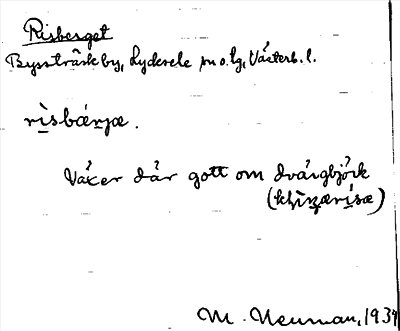 Risberget
Bysstrāsk by, Lycksele sn o. lg, Västerb. l.
rìsbǽrjæ.
Växer där gott om dvärgbjörk
(kḷìŋærísæ)
M. Neuman, 1934